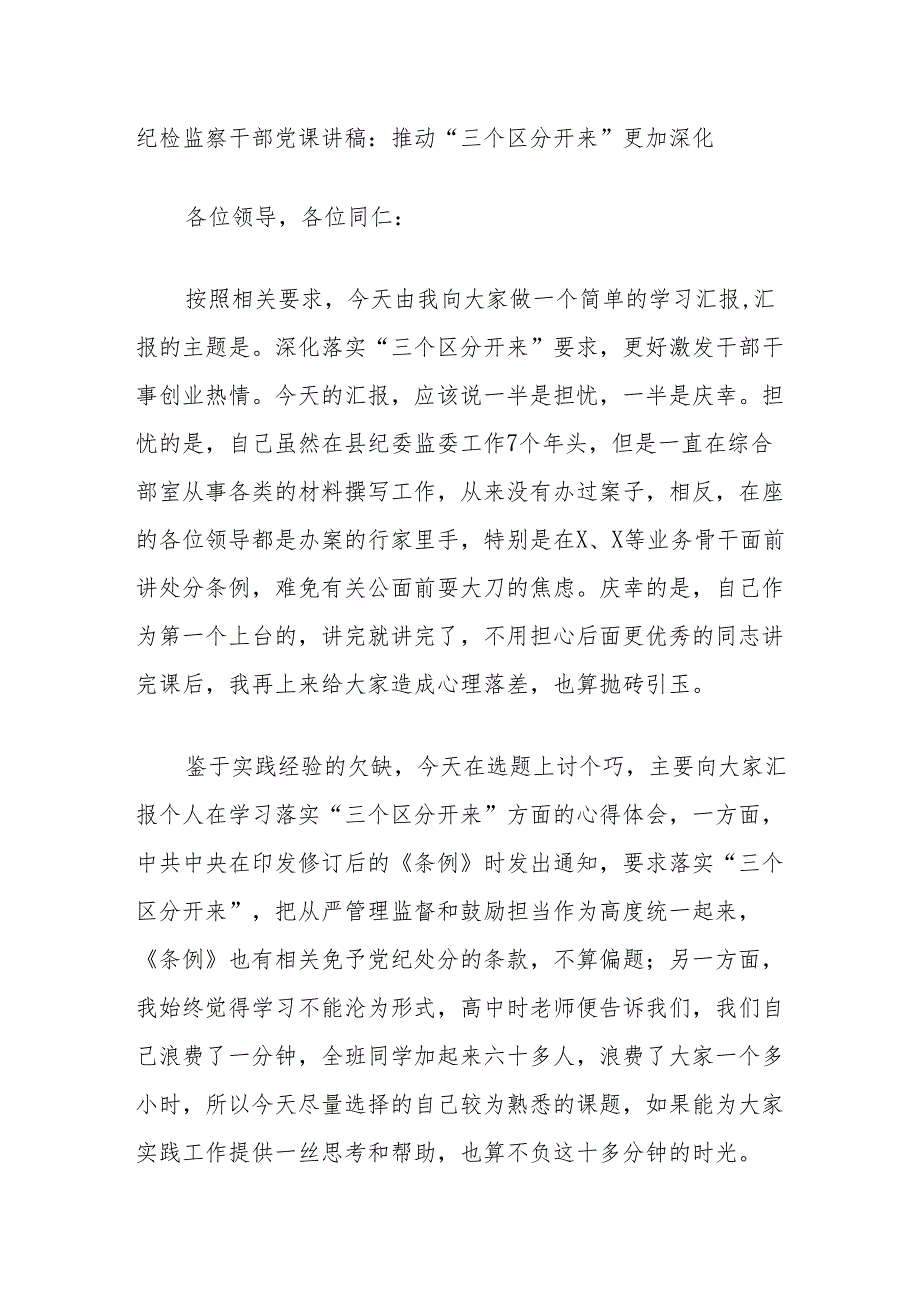 纪检监察干部党课讲稿：推动“三个区分开来”更加深化
各位领导，各位同仁：
按照相关要求，今天由我向大家做一个简单的学习汇报,汇
报的主题是。深化落实“三个区分开来”要求，更好激发干部干
事创业热情。今天的汇报，应该说一半是担忧，一半是庆幸。担
忧的是，自己虽然在县纪委监委工作7个年头，但是一直在综合
部室从事各类的材料撰写工作，从来没有办过案子，相反，在座
的各位领导都是办案的行家里手，特别是在X、X等业务骨干面前
讲处分条例，难免有关公面前耍大刀的焦虑。庆幸的是，自己作
为第一个上台的，讲完就讲完了，不用担心后面更优秀的同志讲
完课后，我再上来给大家造成心理落差，也算抛砖引玉。
鉴于实践经验的欠缺，今天在选题上讨个巧，主要向大家汇
报个人在学习落实“三个区分开来”方面的心得体会，一方面，
中共中央在印发修订后的《条例》时发出通知，要求落实“三个
区分开来”，把从严管理监督和鼓励担当作为高度统一起来，
《条例》也有相关免予党纪处分的条款，不算偏题；另一方面，
我始终觉得学习不能沦为形式，高中时老师便告诉我们，我们自
己浪费了一分钟，全班同学加起来六十多人，浪费了大家一个多
小时，所以今天尽量选择的自己较为熟悉的课题，如果能为大家
实践工作提供一丝思考和帮助，也算不负这十多分钟的时光。